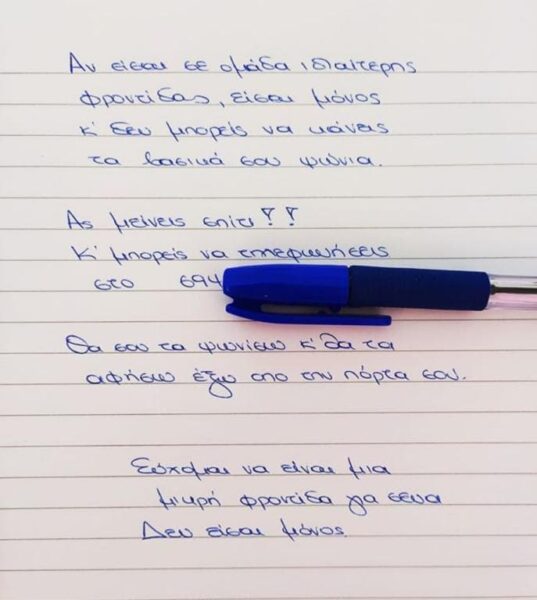 Αν είσαι σε ομάδα ιδιαίτερης
φροντίδας, είσαι μόνος
κ' δεν μπορείς να κάνεις
τα βασικά σου ψώνια.
Ας μείνεις σπίτι!!
Κ' μπορείς να τηλεφωνήσεις
στο 694
Θα σου τα ψωνίσω κ' θα τα
αφήσω έξω απο την πόρτα σου.
Εύχομαι να είναι μια
μικρή φροντίδα για σενα
Δεν είσαι μόνος.